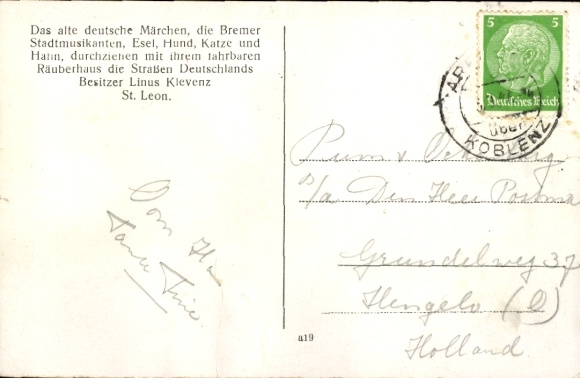 Das alte deutsche Märchen, die Bremer
Stadtmusikanten, Esel, Hund, Katze und
Hahn, durchziehen mit ihrem fahrbaren
Räuberhaus die Straßen Deutschlands
Besitzer Linus Klevenz
St. Leon.
5 5
Deutsches Reich
über
KOBLENZ
p/a Den Heer Postma
Grundelweg 37
Hengelo (O)
Holland.
Oom
Tante Tine.
a19